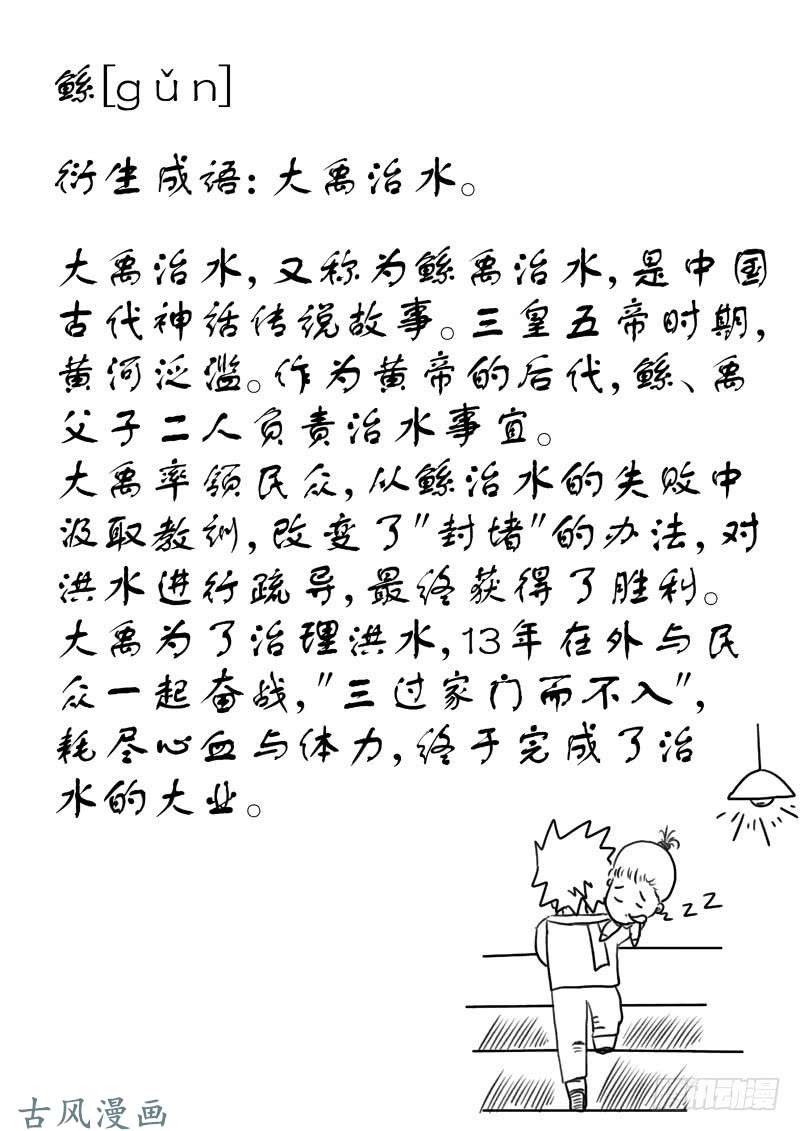 鲧[gǔn]
衍生成语：大禹治水。
大禹治水，又称为鲧禹治水，是中国
古代神话传说故事。三皇五帝时期，
黄河泛滥。作为黄帝的后代，鲧、禹
父子二人负责治水事宜。
大禹率领民众，从鲧治水的失败中
汲取教训，改变了"封堵"的办法，对
洪水进行疏导，最终获得了胜利。
大禹为了治理洪水，13年在外与民
众一起奋战，"三过家门而不入"，
耗尽心血与体力，终于完成了治
水的大业。
zzz
古风漫画
腾讯动漫